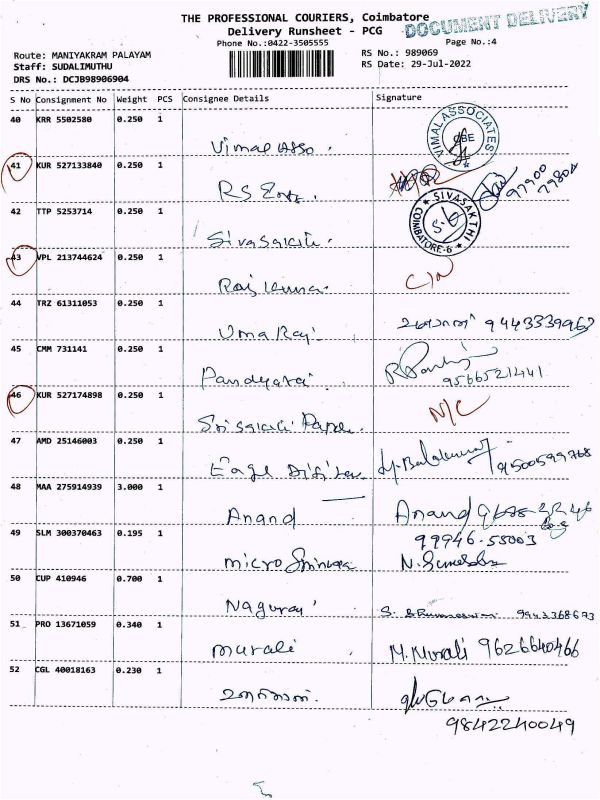 THE PROFESSIONAL COURIERS, Coimbatore
DOCUMENT DELIVERY
Delivery Runsheet - PCG
Phone No.:0422-3505555
Page No.:4
Route: MANIYAKRAM PALAYAM
RS No.: 989069
Staff: SUDALIMUTHU
RS Date: 29-Jul-2022
DRS No.: DCJB98906904
S No Consignment No Weight PCS Consignee Details Signature
40 KRR 5502580 0.250 1
Vimal Asso.
VIMAL ASSOCIATES
CBE
41 KUR 527133840 0.250 1
RS
97900
79804
42 TTP 5253714 0.250 1
Sivasakthi.
SIVASAKTHI
COIMBATORE-6
43 VPL 213744624 0.250 1
Raj Kumar.
44 TRZ 61311053 0.250 1
Uma Raj 9443339967
45 CMM 731141 0.250 1
9566521441
46 KUR 527174898 0.250 1
N/C
Sri sakthi Paper.
47 AMD 25146003 0.250 1
Eagle
91500599768
48 MAA 275914939 3.000 1
Anand Anand
49 SLM 300370463 0.195 1
99946-55003
micro
50 CUP 410946 0.700 1
Naguraj 9943368673
51 PRO 13671059 0.340 1
murali M. Murali 9626640466
52 CGL 40018163 0.230 1
9842240049